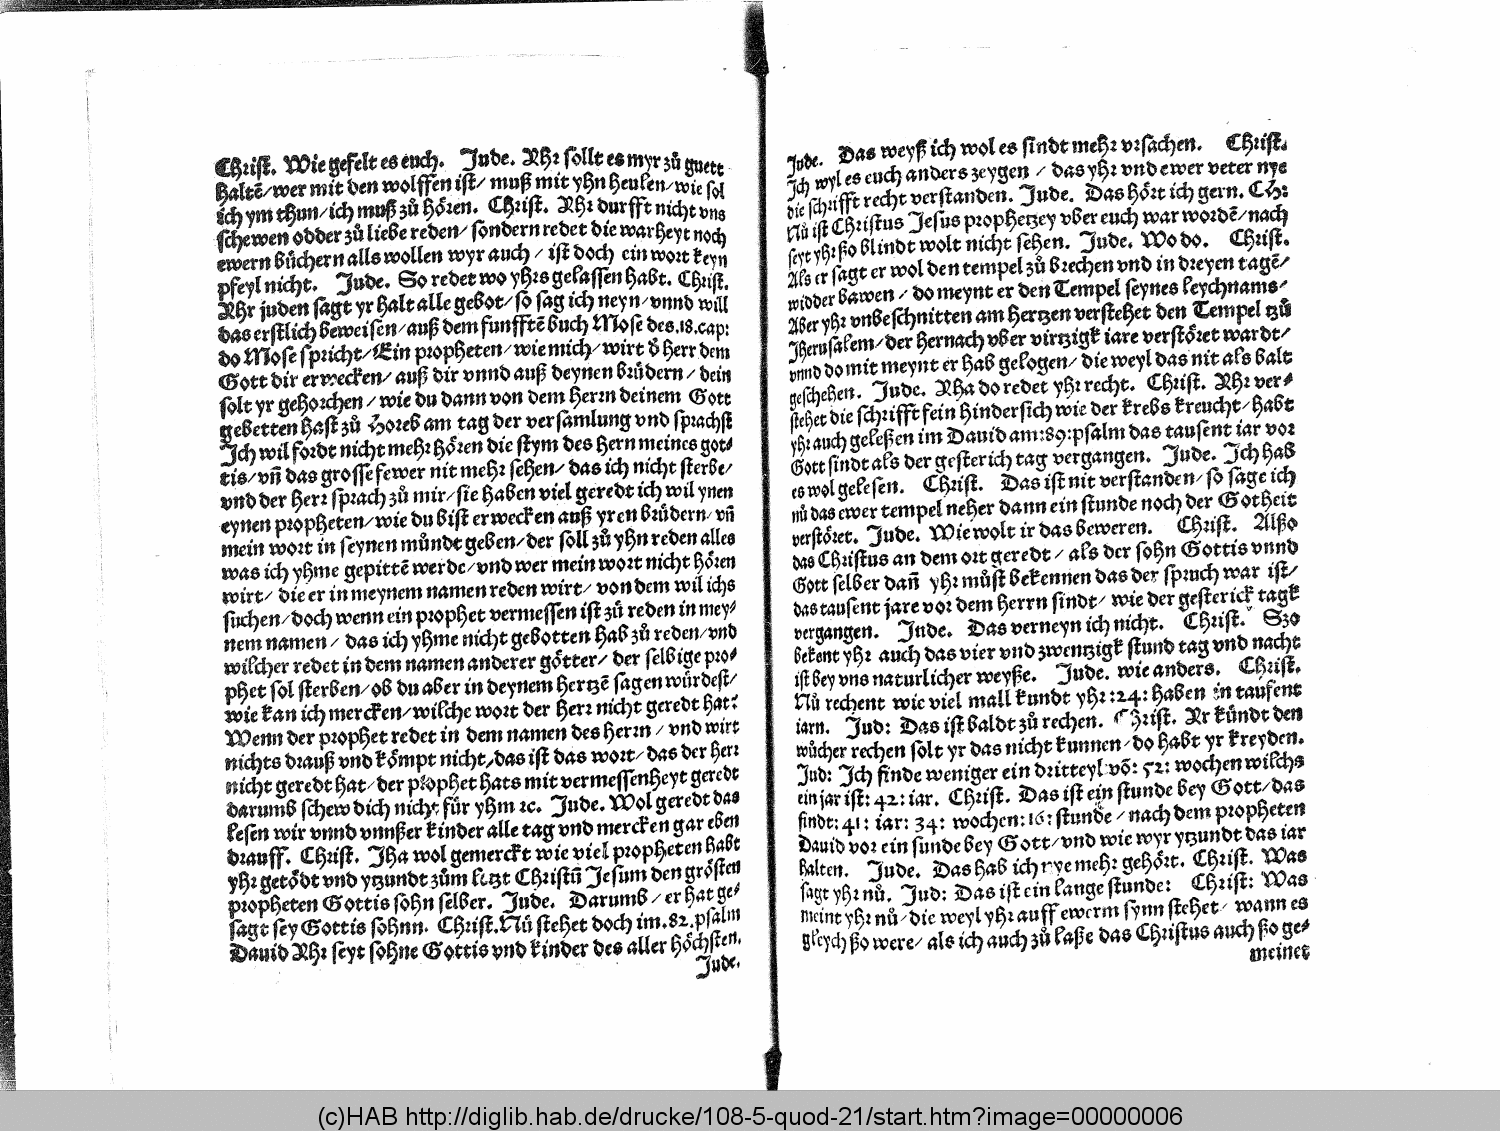 Christ. Wie gefelt es euch. Jude. Yhr sollt es myr zů guett
haltē/wer mit den wolffen ist/ muß mit yhn heulen/wie sol
ich ym thun/ich muß zů hören. Christ. Yhr durfft nicht vns
schewen odder zů liebe reden/ sondern redet die warheyt noch
ewern bůchern alls wollen wyr auch / ist doch ein wort keyn
pfeyl nicht. Jude. So redet wo yhrs gelassen habt. Christ.
Yhr juden sagt yr halt alle gebot/ so sag ich neyn/ vnnd will
das erstlich beweisen/ auß dem funfftē buch Mose des.18.cap:
do Mose spricht/ Ein propheten/ wie mich/ wirt ð herr dem
Gott dir erwecken/ auß dir vnnd auß deynen brůdern / dein
solt yr gehorchen / wie du dann von dem herrn deinem Gott
gebetten hast zů Horeb am tag der versamlung vnd sprachst
Ich wil fordt nicht mehr hören die stym des hern meines got/
tis/ vñ das grosse fewer nit mehr sehen/ das ich nicht sterbe/
vnd der herr sprach zů mir/ sie haben viel geredt ich wil ynen
eynen propheten/ wie du bist erwecken auß yren brůdern/ vñ
mein wort in seynen můndt geben/ der soll zů yhn reden alles
was ich yhme gepittē werde/ vnd wer mein wort nicht hören
wirt/ die er in meynem namen reden wirt/ von dem wil ichs
suchen/ doch wenn ein prophet vermessen ist zů reden in mey/
nem namen / das ich yhme nicht gebotten hab zů reden/ vnd
wilcher redet in dem namen anderer götter/ der selbige pro/
phet sol sterben/ ob du aber in deynem hertzē sagen wůrdest/
wie kan ich mercken/ wilche wort der herr nicht geredt hat:
Wenn der prophet redet in dem namen des herrn / vnd wirt
nichts drauß vnd kömpt nicht/ das ist das wort/ das der herr
nicht geredt hat/ der prophet hats mit vermessenheyt geredt
darumb schew dich nicht für yhm ꝛc. Jude. Wol geredt das
lesen wir vnnd vnnßer kinder alle tag vnd mercken gar eben
drauff. Christ. Jha wol gemerckt wie viel propheten habt
yhr getödt vnd ytzundt zům letzt Christū Jesum den grösten
propheten Gottis sohn selber. Jude. Darumb / er hat ge/
sagt sey Gottis sohnn. Christ. Nů stehet doch im.82.psalm
Dauid Yhr seyt sohne Gottis vnd kinder des aller höchsten.
Jude.
Jude. Das weyß ich wol es sindt mehr vrsachen. Christ.
Ich wyl es euch anders zeygen / das yhr vnd ewer veter nye
die schrifft recht verstanden. Jude. Das hört ich gern. Chr:
Nů ist Christus Jesus prophetzey vber euch war wordē/ nach
seyt yhr ßo blindt wolt nicht sehen. Jude. Wo do. Christ.
Als er sagt er wol den tempel zů brechen vnd in dreyen tagē/
widder bawen / do meynt er den Tempel seynes leychnams/
Aber yhr vnbeschnitten am hertzen verstehet den Tempel tzů
Jherusalem/ der hernach vber virtzigk iare verstöret wardt/
vnnd do mit meynt er hab gelogen/ die weyl das nit als balt
geschehen. Jude. Yha do redet yhr recht. Christ. Yhr ver/
stehet die schrifft fein hindersich wie der krebs kreucht/ habt
yhr auch geleßen im Dauid am:89:psalm das tausent iar vor
Gott sindt als der gesterich tag vergangen. Jude. Ich hab
es wol gelesen. Christ. Das ist nit verstanden/ so sage ich
nů das ewer tempel neher dann ein stunde noch der Gotheit
verstöret. Jude. Wie wolt ir das beweren. Christ. Alßo
das Christus an dem ort geredt / als der sohn Gottis vnnd
Gott selber dañ yhr můst bekennen das der spruch war ist/
das tausent jare vor dem herrn sindt/ wie der gesterick tagk
vergangen. Jude. Das verneyn ich nicht. Christ. Szo
bekent yhr auch das vier vnd zwentzigk stund tag vnd nacht
ist bey vns naturlicher weyße. Jude. wie anders. Christ.
Nů rechent wie viel mall kundt yhr :24: haben in tausent
iarn. Jud: Das ist baldt zů rechen. Christ. Yr kůndt den
wůcher rechen solt yr das nicht kunnen/ do habt yr kreyden.
Jud: Ich finde weniger ein dritteyl võ: 52: wochen wilchs
ein jar ist: 42: iar. Christ. Das ist ein stunde bey Gott/ das
sindt: 41: iar: 34: wochen: 16: stunde / nach dem propheten
Dauid vor ein sunde bey Gott/ vnd wie wyr ytzundt das iar
halten. Jude. Das hab ich nye mehr gehört. Christ. Was
sagt yhr nů. Jud: Das ist ein lange stunde: Christ: Was
meint yhr nů/ die weyl yhr auff ewerm synn stehet/ wann es
gleych ßo were/ als ich auch zů laße das Christus auch ßo ge/
meinet
(c)HAB http://diglib.hab.de/drucke/108-5-quod-21/start.htm?image=00000006